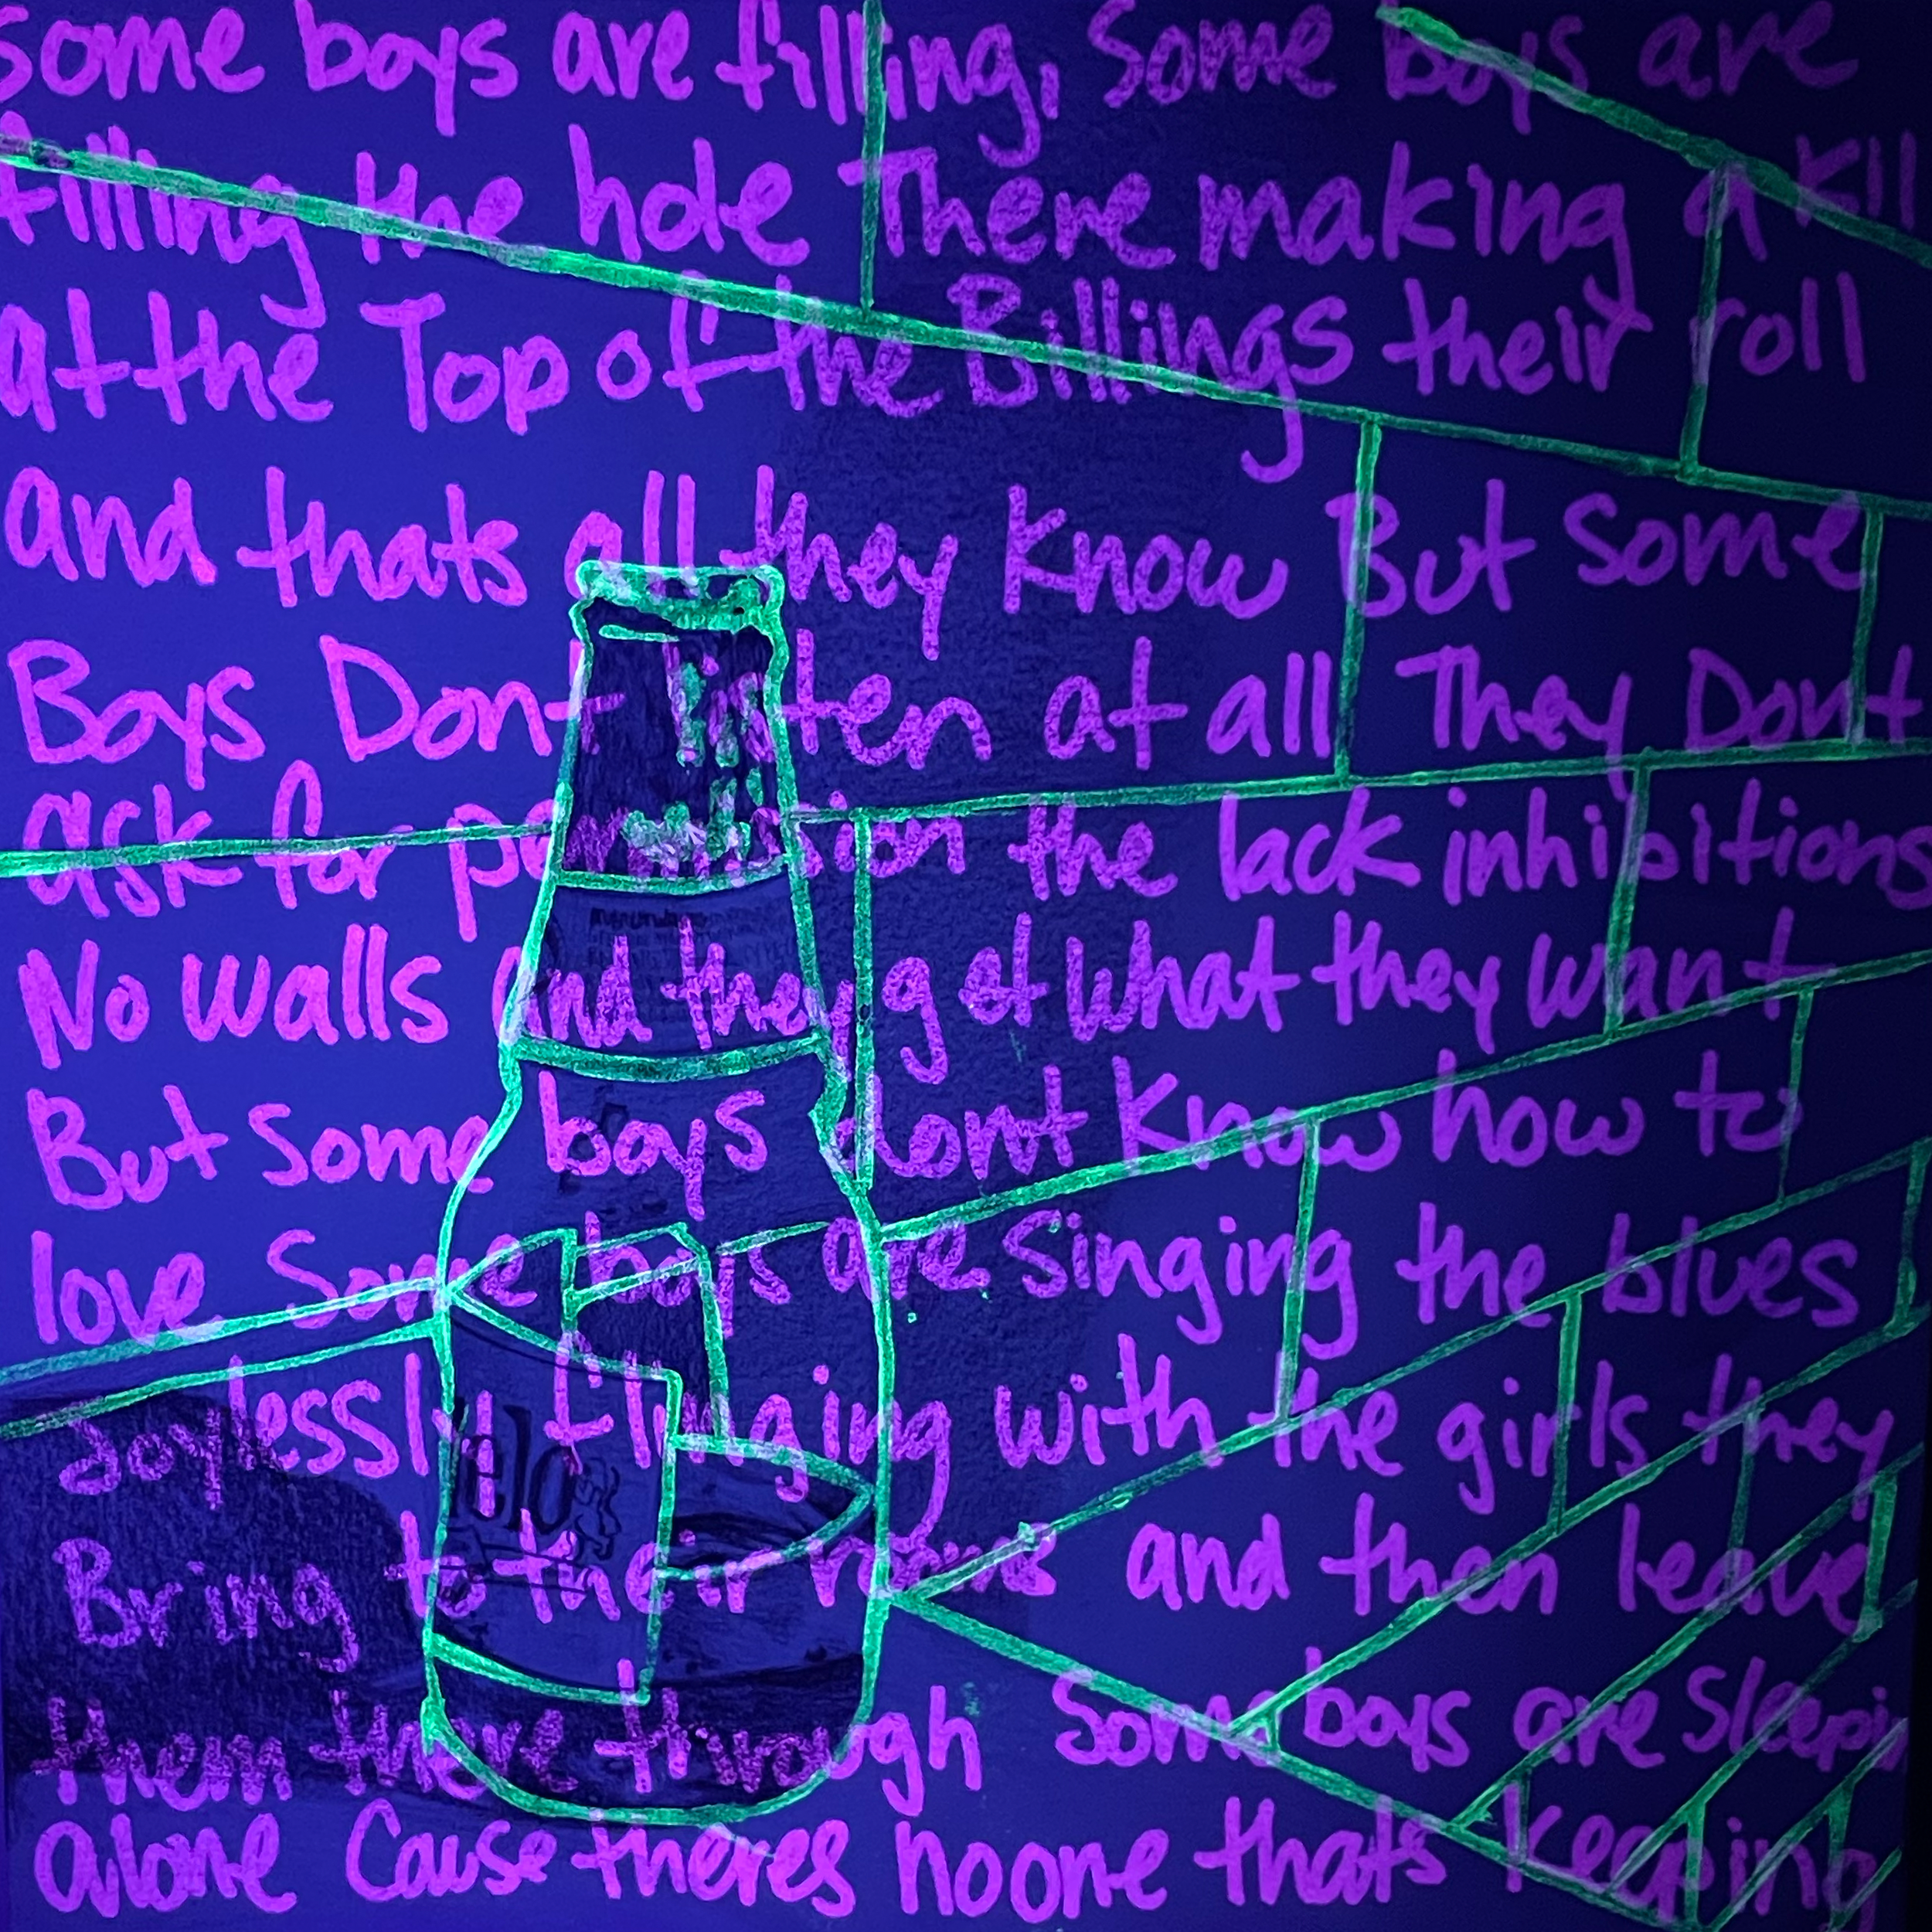 some boys are filling, Some boys are
filling the hole There making a Kill
at the Top of the Billings their roll
and thats all they Know But Some
Boys Dont at all They Dont
ask for the lack inhibitions
No walls and they get what they want
But Some boys dont Know how to
love Some boys are Singing the blues
Joylessly with the girls they
Bring to their and then leave
them there through Some boys are Sleepin
alone Cause theres noone thats Keeping